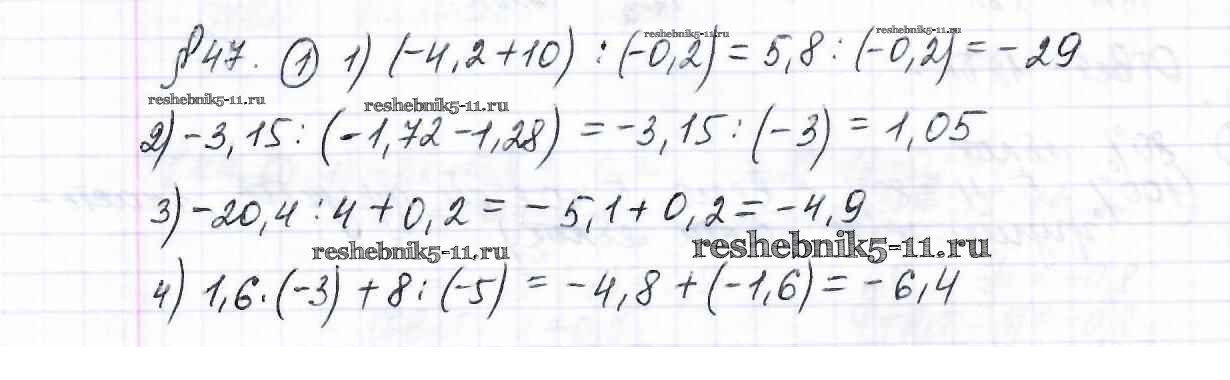 § 47. ① 1) (-4,2+10) : (-0,2) = 5,8 : (-0,2) = -29
reshebnik5-11.ru reshebnik5-11.ru
reshebnik5-11.ru reshebnik5-11.ru
2) -3,15 : (-1,72-1,28) = -3,15 : (-3) = 1,05
3) -20,4 : 4 + 0,2 = -5,1 + 0,2 = -4,9
reshebnik5-11.ru reshebnik5-11.ru
4) 1,6 · (-3) + 8 : (-5) = -4,8 + (-1,6) = -6,4